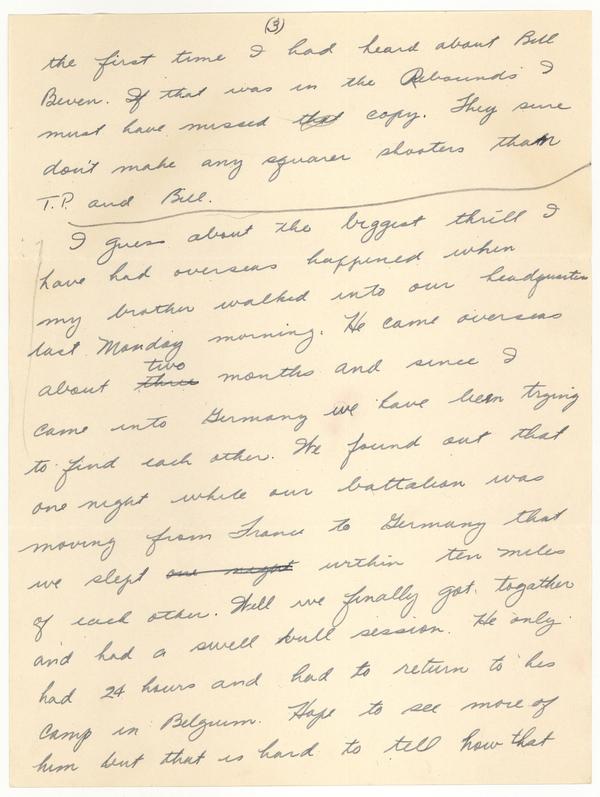 (3)
the first time I had heard about Bill
Beven. If that was in the Rebounds I
must have missed that copy. They sure
don't make any squarer shooters than
T.P. and Bill.
I guess about the biggest thrill I
have had overseas happened when
my brother walked into our headquarters
last Monday morning. He came overseas
two
about three months and since I
came into Germany we have been trying
to find each other. We found out that
one night while our battalion was
moving from France to Germany that
we slept one night within ten miles
of each other. Well we finally got together
and had a swell bull session. He only
had 24 hours and had to return to his
camp in Belguim. Hope to see more of
him but that is hard to tell how that